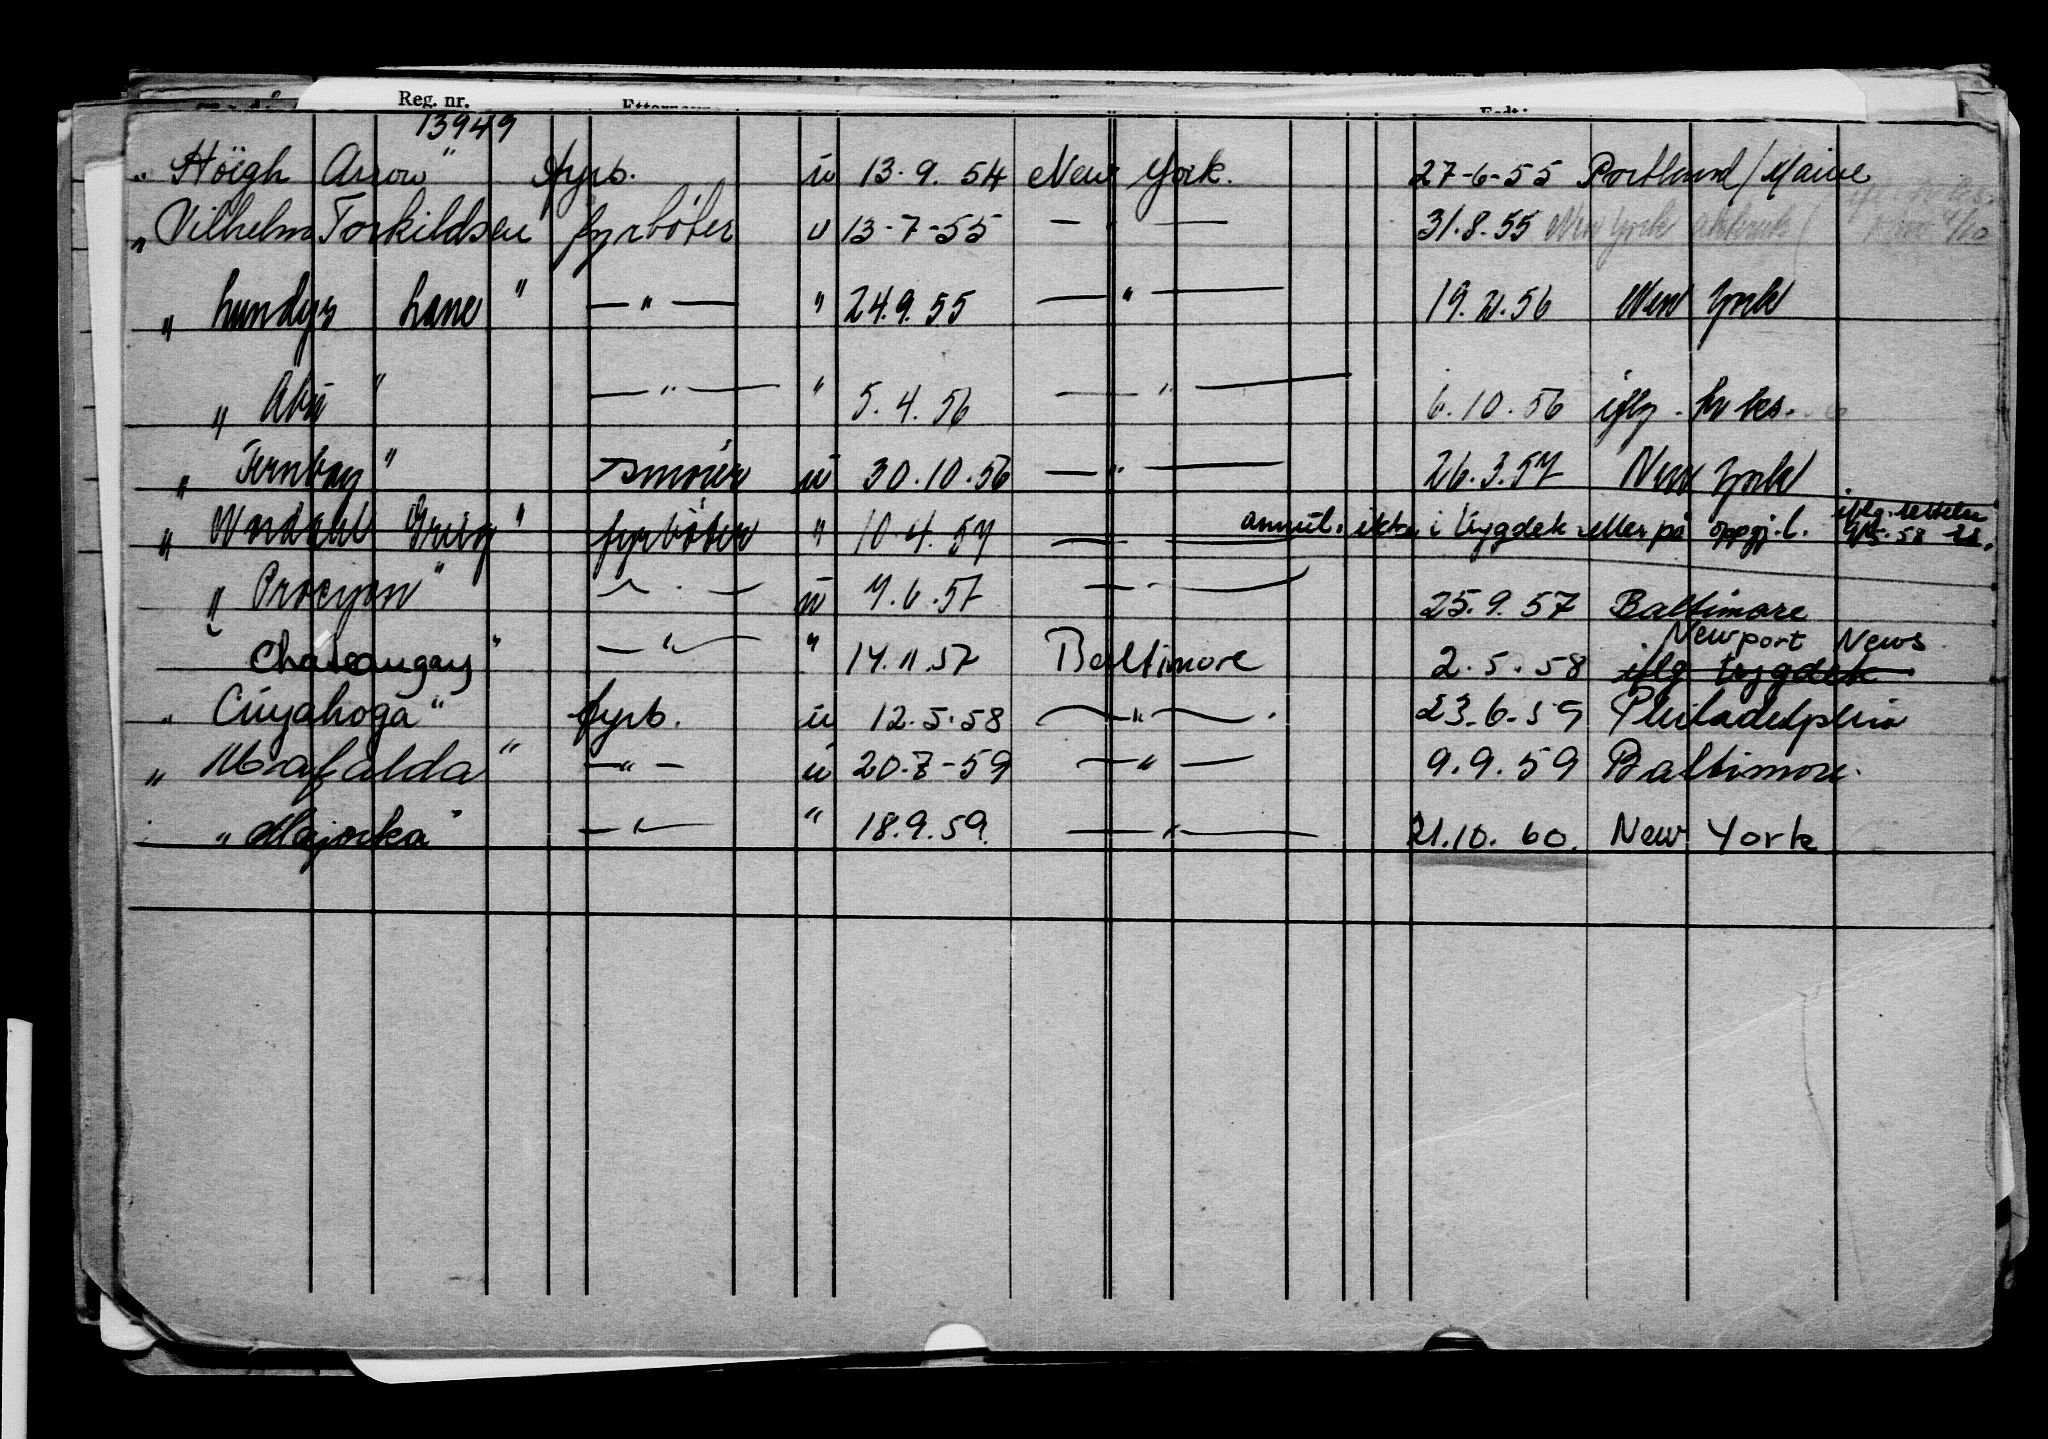 Reg. nr.
13949
" Höegh Arrow" fyrb. u 13.9.54 New York. 27-6-55 Portland/Maine
" Vilhelm Torkildsen fyrbøter u 13-7-55 — " — 31.8.55 New York
" Lundys Lane" — " — " 24.9.55 — " — 19.2.56 New York
" Abu" — " — " 5.4.56 — " — 6.10.56 iflg.
" Fernbay" smører u 30.10.56 — " — 26.3.57 New York
" Nordahl Grieg" fyrbøter " 10.4.57 — " — annul. ikke i trygdek eller på oppgj.l. iflg.
" Procyon" — " — u 7.6.57 — " — 25.9.57 Baltimore
" Chateaugay" — " — " 14.11.57 Baltimore 2.5.58 iflg trygdek Newport News
" Cuyahoga" fyrb. u 12.5.58 — " — 23.6-59 Philadelphia
" Mafalda" — " — u 20.7-59 — " — 9.9.59 Baltimore.
" Majorka" — " — " 18.9.59. — " — 21.10.60. New York